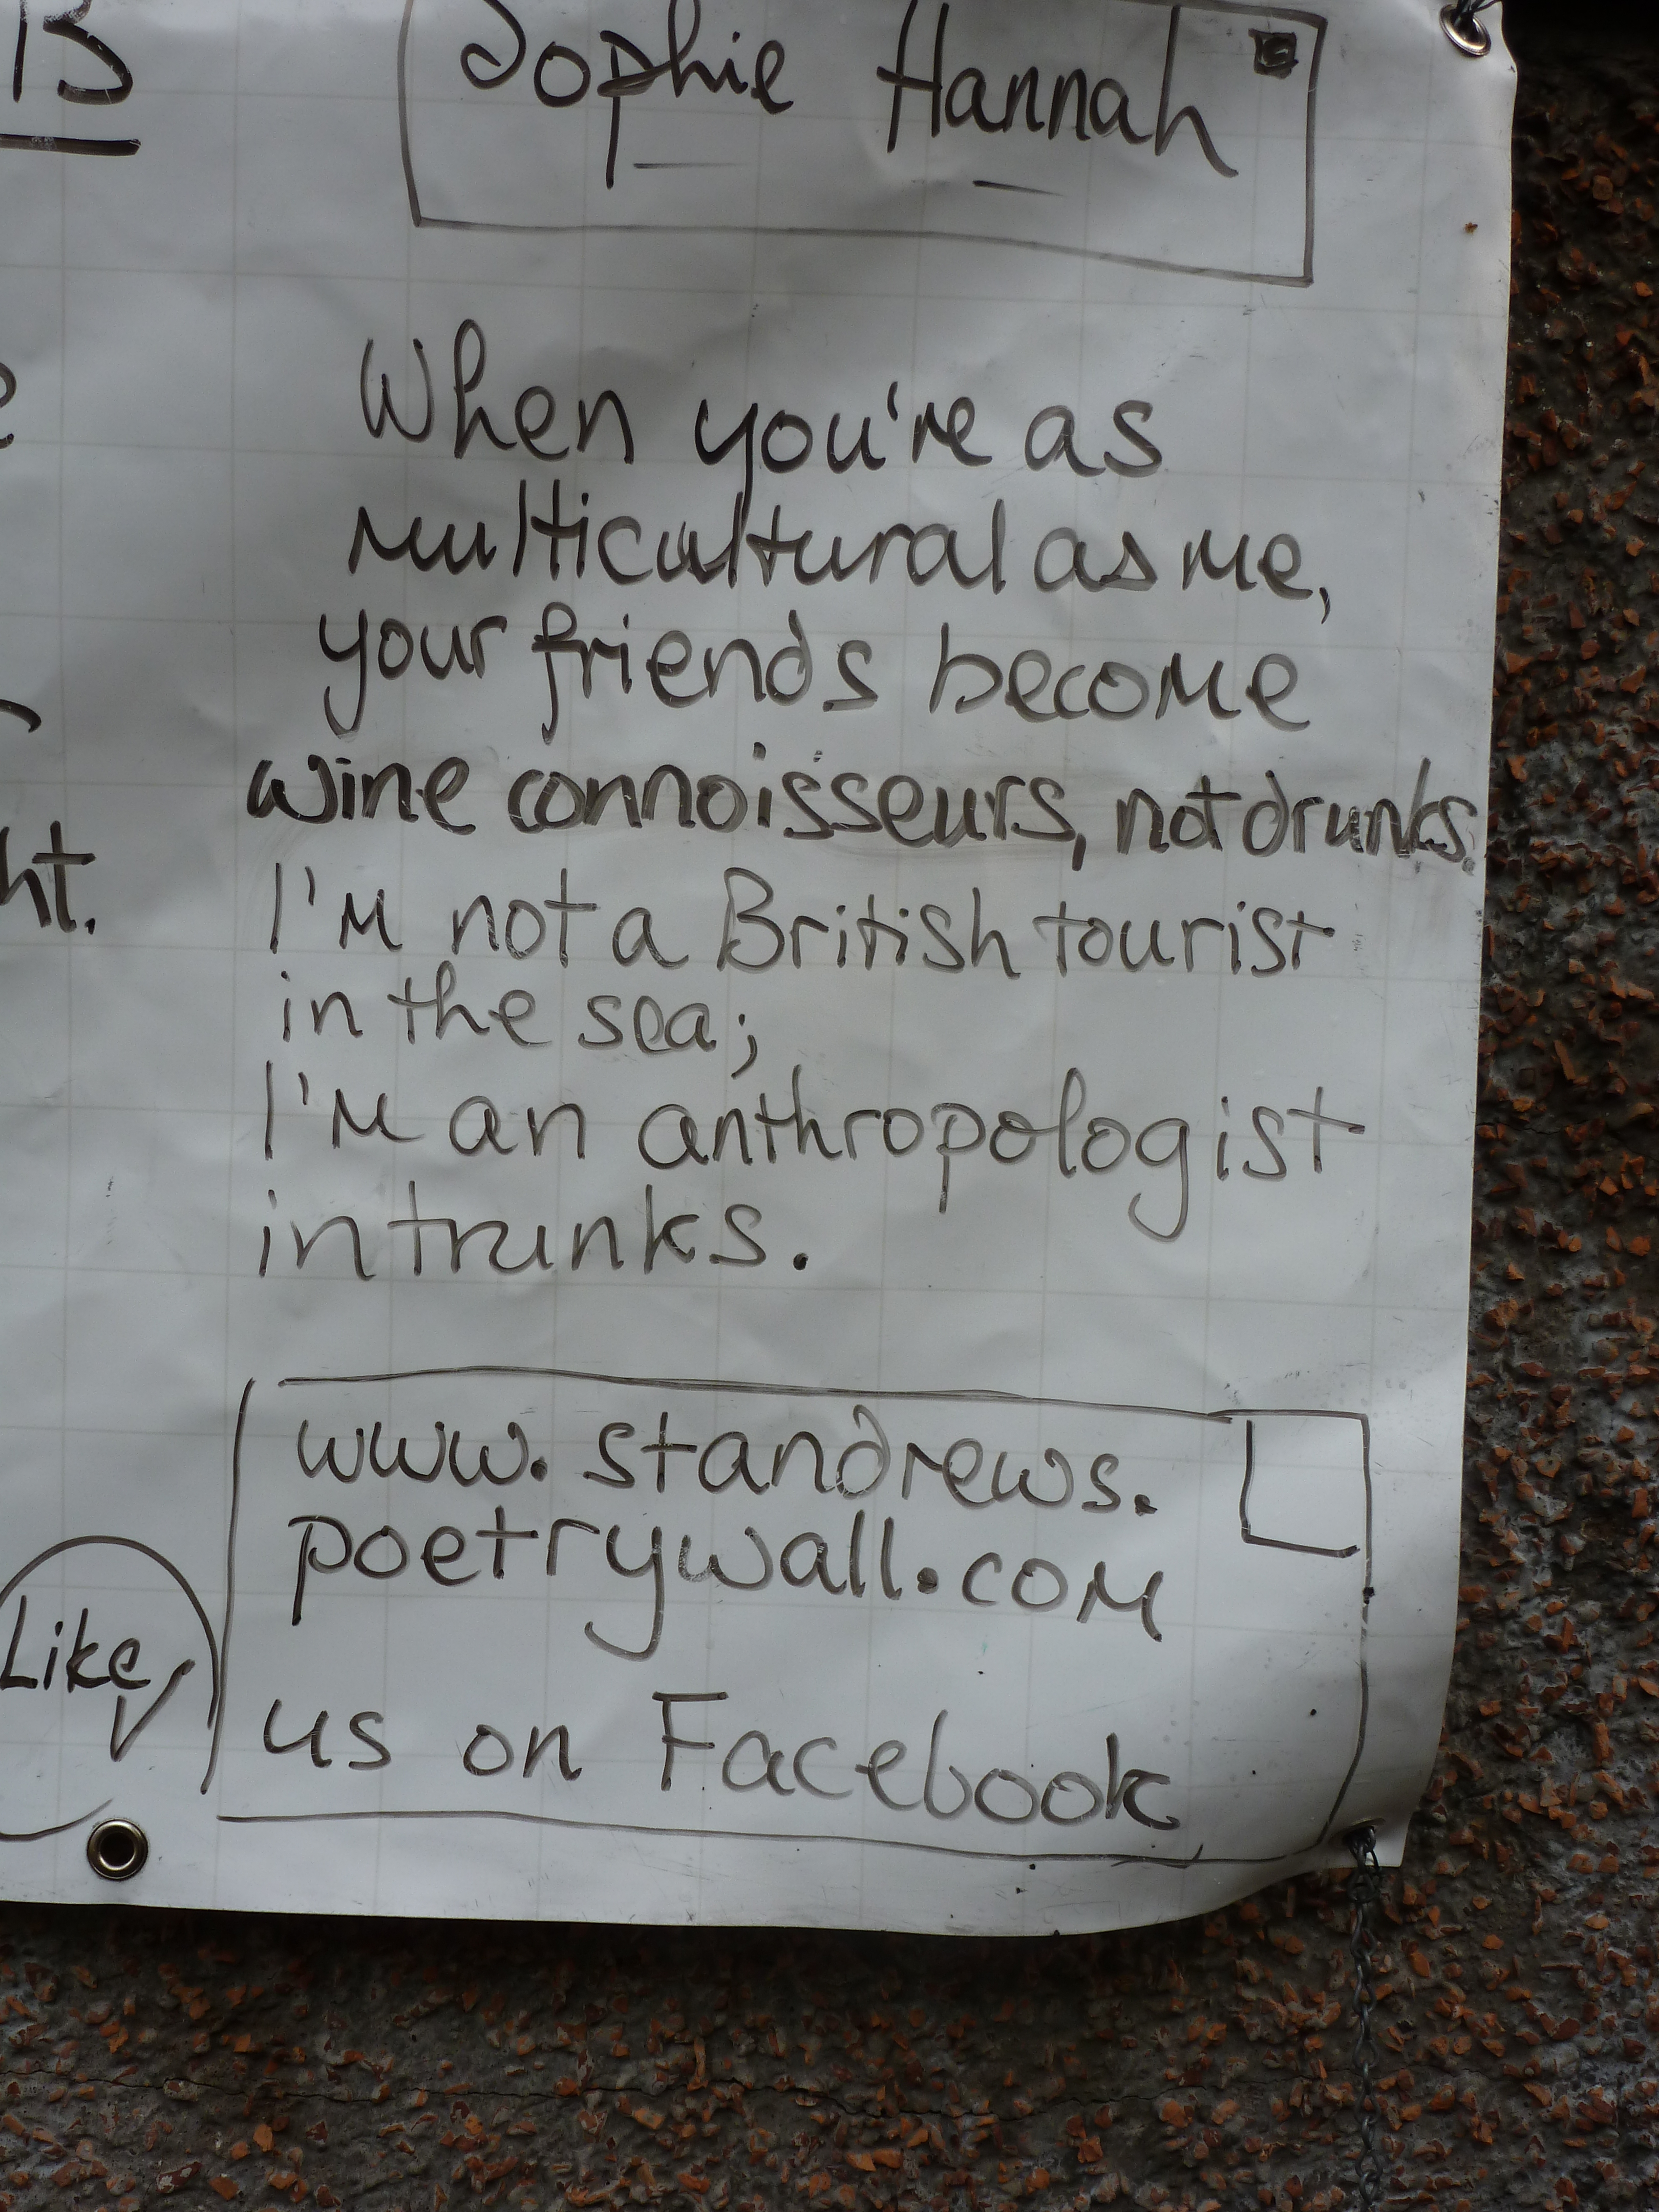 B
Sophie Hannah
When you're as
multicultural as me,
your friends become
wine connoisseurs, not drunks.
I'm not a British tourist
in the sea;
I'm an anthropologist
in trunks.
ht.
www.standrews.
poetrywall.com
Like
us on Facebook